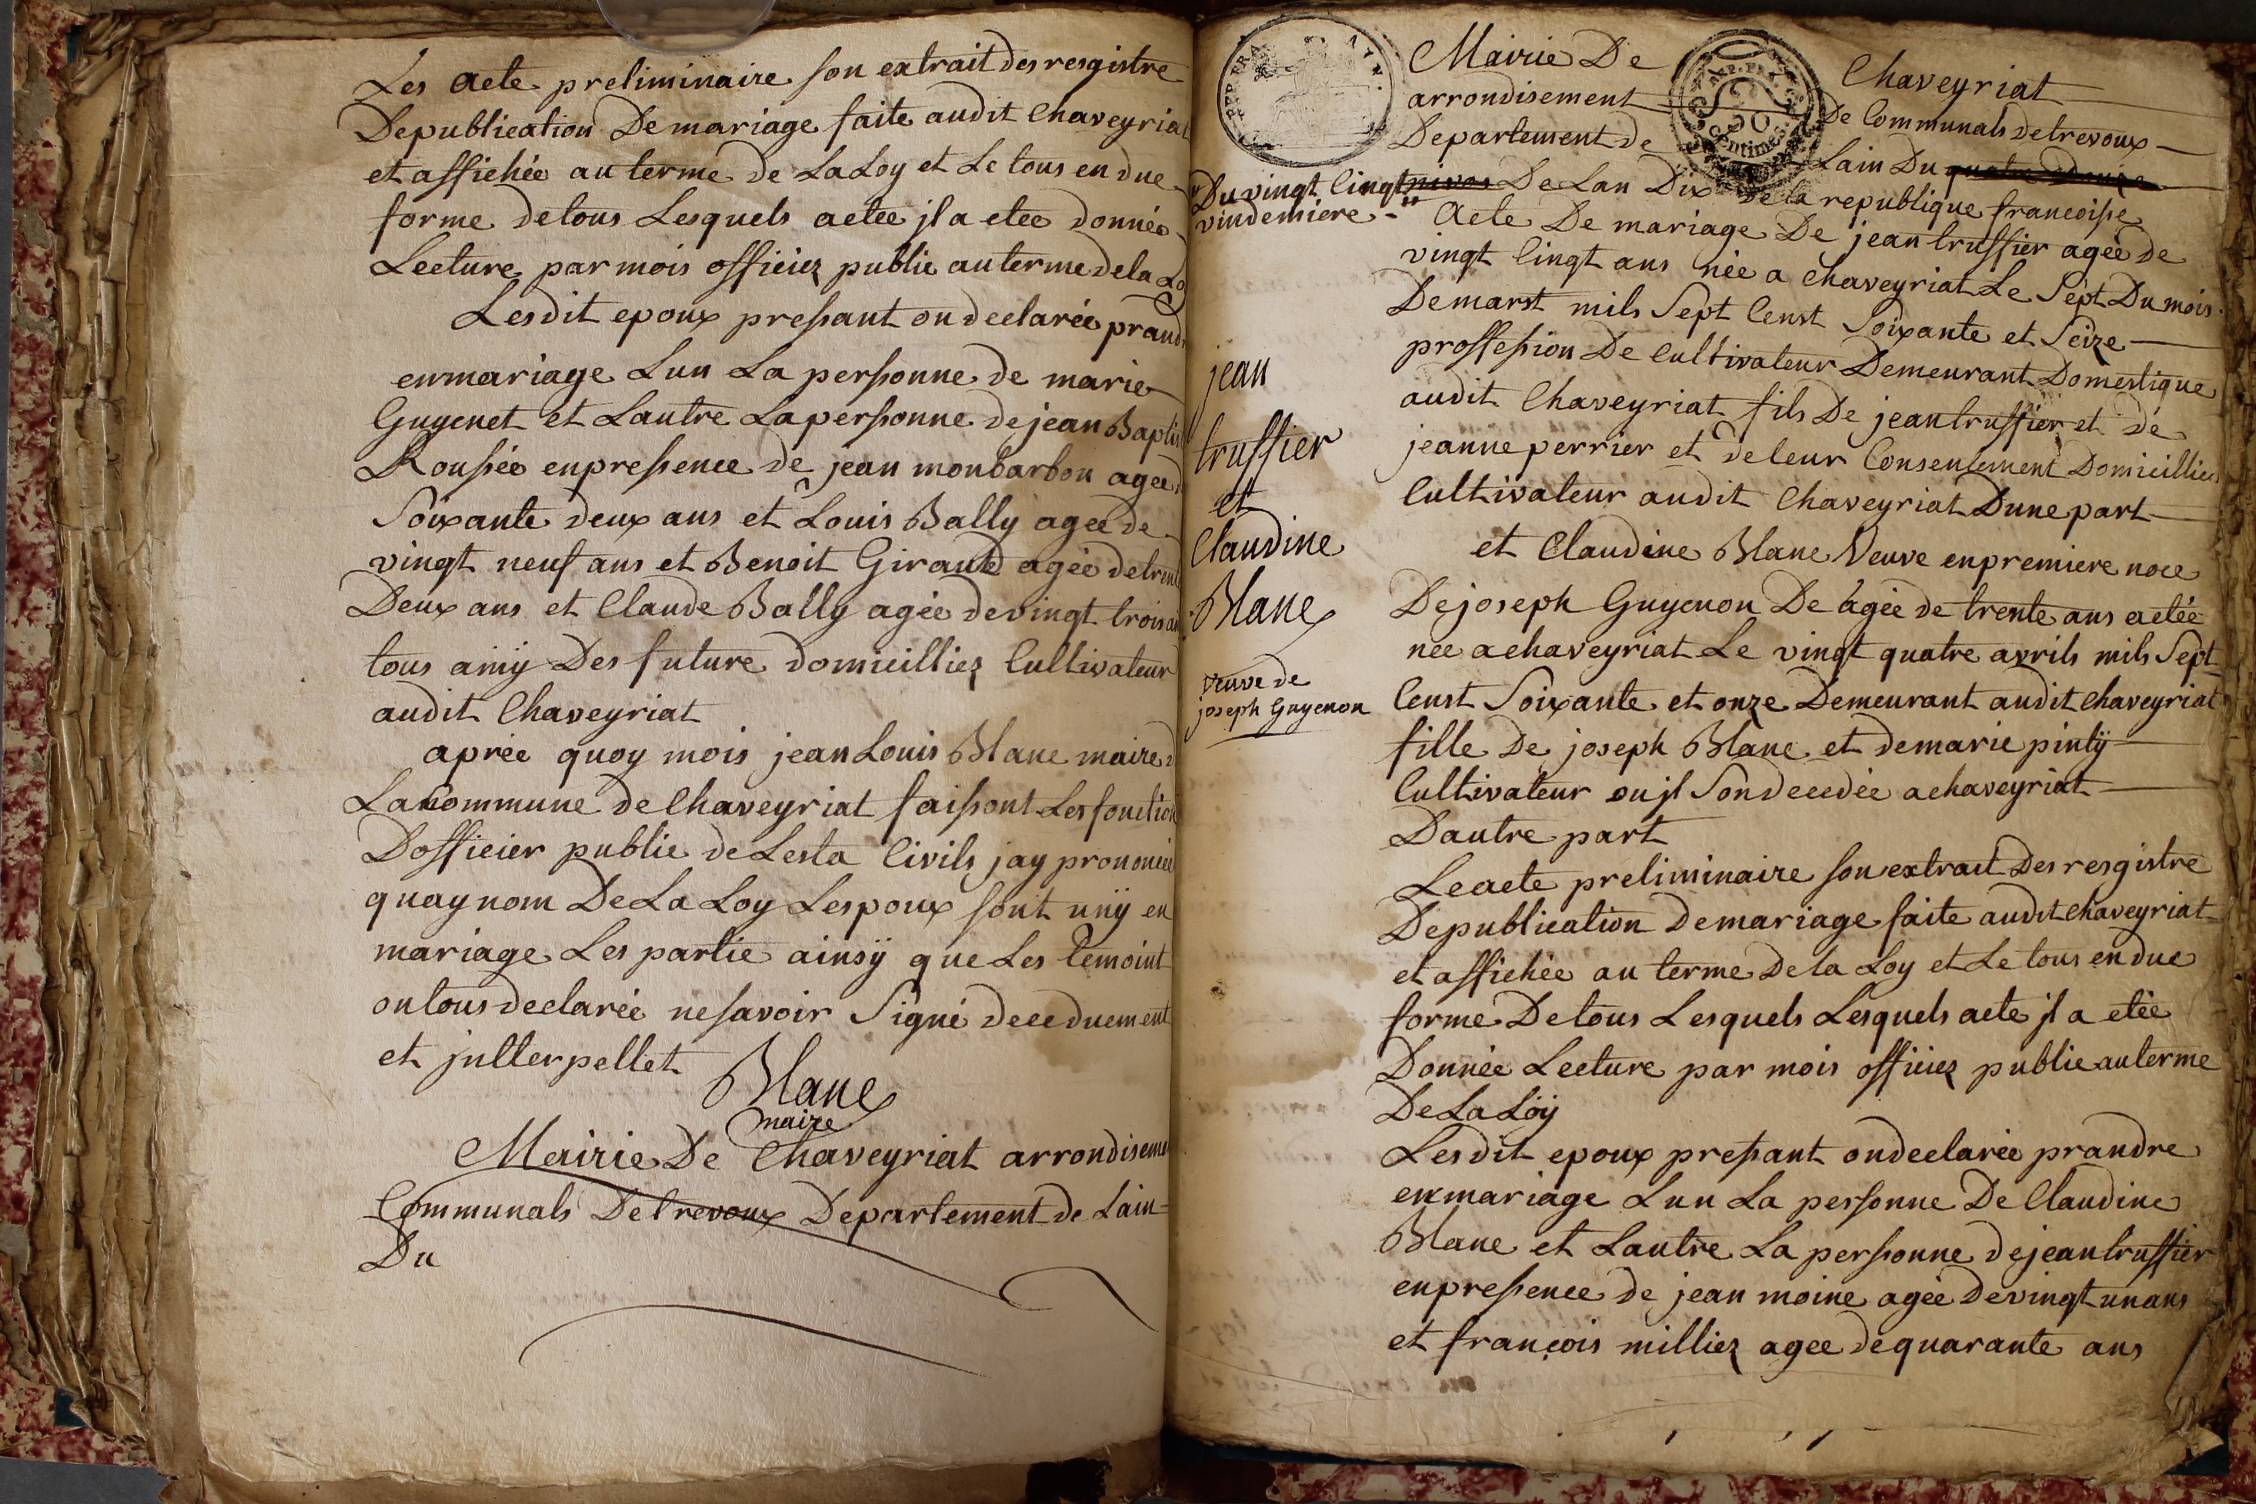 Les acte preliminaire son extrait des resgistre
De publication De mariage faite audit Chaveyriat
et affichée au terme de La Loy et Le tous en due
forme de tous Lesquels actee jl a etee donnée
Lecture par mois officiez public au terme de la Lo
Lesdit epoux pressant on declarée prand
en mariage Lun La personne de marie
Guyenet et Lautre La personne de jean Baptis
Roussée en pressence de jean monbarbon agee
Soixante deux ans et Louis Bally agée de
vingt neuf ans et Benoit Giraud agée de trent
Deux ans et Claude Bally agée de vingt trois an
tous amÿ Des future domicilliez Cultivateur
audit Chaveyriat
aprée quoy mois jean Louis Blanc maire d
La Commune de Chaveyriat faissont Les fonction
Dofficier public de Lesta Civils jay prononcée
quay nom De La Loy Lespoux sont unÿ en
mariage Les partie ainsÿ que Les temoint
on tous declarée ne savoir Signé de ce duement
et jntterpellet
Blanc
maire
Mairie De Chaveyriat arrondiseme
Communals De trevoux Departement de Lain
Du
REP. FRA
Mairie De Chaveyriat
arrondisement De Communals de trevoux
30
Centimes
Departement de Lain Du quatre Douze
Du vingt Cingt nivos De Lan Dix De la republique francoise
vindemiere
Acte De mariage De jean truffier agée de
vingt Cingt ans née a Chaveyriat Le Sept Du mois
De marst mils Sept Censt Soixante et Seize
proffession De Cultivateur Demeurant Domestique
audit Chaveyriat fils De jean truffier et de
jeanne perrier et de leur Consentement Domicillier
Cultivateur audit Chaveyriat Dune part
jean
truffier
et
Claudine
Blanc
veuve de
joseph Guyenon
et Claudine Blanc Veuve en premiere noce
De joseph Guyenon De agée de trente ans actée
née a chaveyriat Le vingt quatre avrils mils Sept
Censt Soixante et onze Demeurant audit Chaveyriat
fille De joseph Blanc et de marie pintÿ
Cultivateur ou jl Son decedée a chaveyriat
Dautre part
Le acte preliminaire son extrait Des resgistre
De publication De mariage faite audit Chaveyriat
et affichée au terme De la Loy et Le tous en due
forme De tous Lesquels Lesquels acte jl a etée
Donnée Lecture par mois officiez public au terme
De La Loÿ
Lesdit epoux pressant on declarée prandre
en mariage Lun La personne De Claudine
Blanc et Lautre La personne de jean truffier
en pressence de jean moine agée De vingt un ans
et françois milliez agee de quarante ans